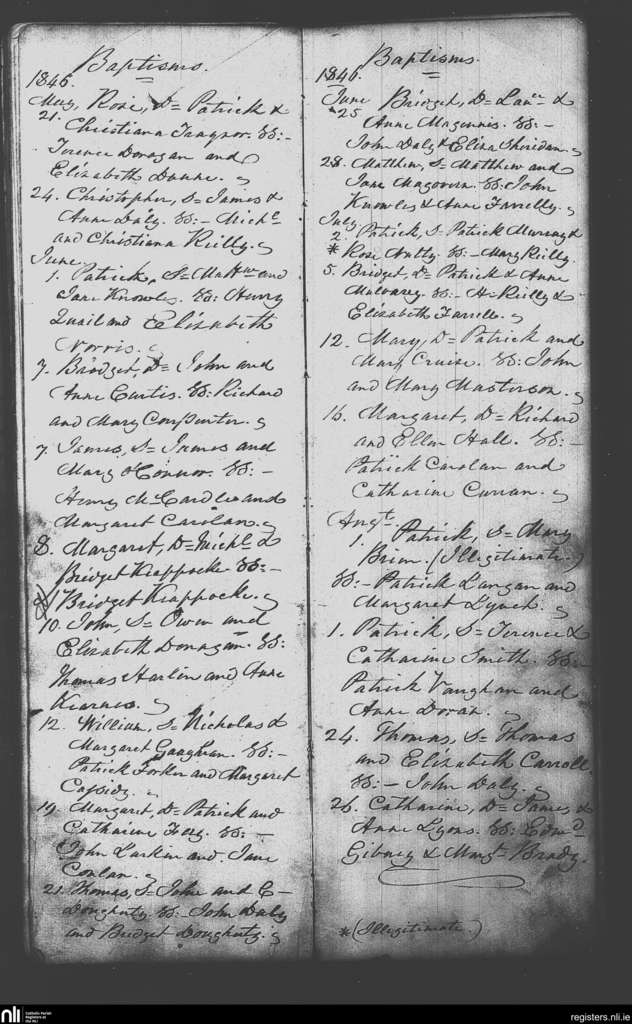 Baptisms.
1846.
May, Rose, D= Patrick &
21. Christiana Traynor. SS:-
Terence Donagan and
Elizabeth Dunne.
24. Christopher, S= James &
Anne Daly. SS:- Michl
and Christiana Reilly.
June
1. Patrick, S= Matthw and
Jane Knowles. SS: Henry
Quail and Elizabeth
Norris.
7. Bridget, D= John and
Anne Curtis. SS: Richard
and Mary Carpenter.
7. James, S= James and
Mary O'Connor. SS:-
Henry McCardle and
Margaret Carolan.
8. Margaret, D= Michl &
Bridget Kiappocke SS:-
Bridget Kiappocke.
10. John, S= Owen and
Elizabeth Donagan. SS:
Thomas Harlin and Anne
Kearnes.
12. William, S= Nicholas &
Margaret Gaughran. SS:-
Patrick Forker and Margaret
Cassidy.
19. Margaret, D= Patrick and
Catharine SS:-
John Larkin and Jane
Conlan.
21. Thomas, S= John and E-
Doughuty SS: John Daly
and Bridget Doughuty.
Baptisms.
1846.
June Bridget, D= Lance &
25 Anne Magennis. SS:-
John Daly & Eliza Sheridan.
28. Matthew, S= Matthew and
Jane Magovern. SS: John
Knowles & Anne Farrelly.
July
2. Patrick, S= Patrick Murray &
* Rose Nutty. SS:- Mary Reilly.
5. Bridget, D= Patrick & Anne
Mulvaney. SS:- H= Reilly &
Elizabeth Farrelle.
12. Mary, D= Patrick and
Mary Cruise. SS: John
and Mary Masterson.
16. Margaret, D= Richard
and Ellen Hall. SS:-
Patrick Carolan and
Catharine Curran.
Augt
1. Patrick, S= Mary
Brien. (Illegitimate.)
SS:- Patrick Langan and
Margaret Lynch.
1. Patrick, S= Terence &
Catharine Smith. SS:-
Patrick Vaughan and
Anne Doran.
24. Thomas, S= Thomas
and Elizabeth Carroll.
SS:- John Daly.
26. Catharine, D= James &
Anne Lyons. SS: Edwd
Gibney & Margt Brady.
*(Illegitimate.)
nli Catholic Parish
Registers at
the NLI
registers.nli.ie